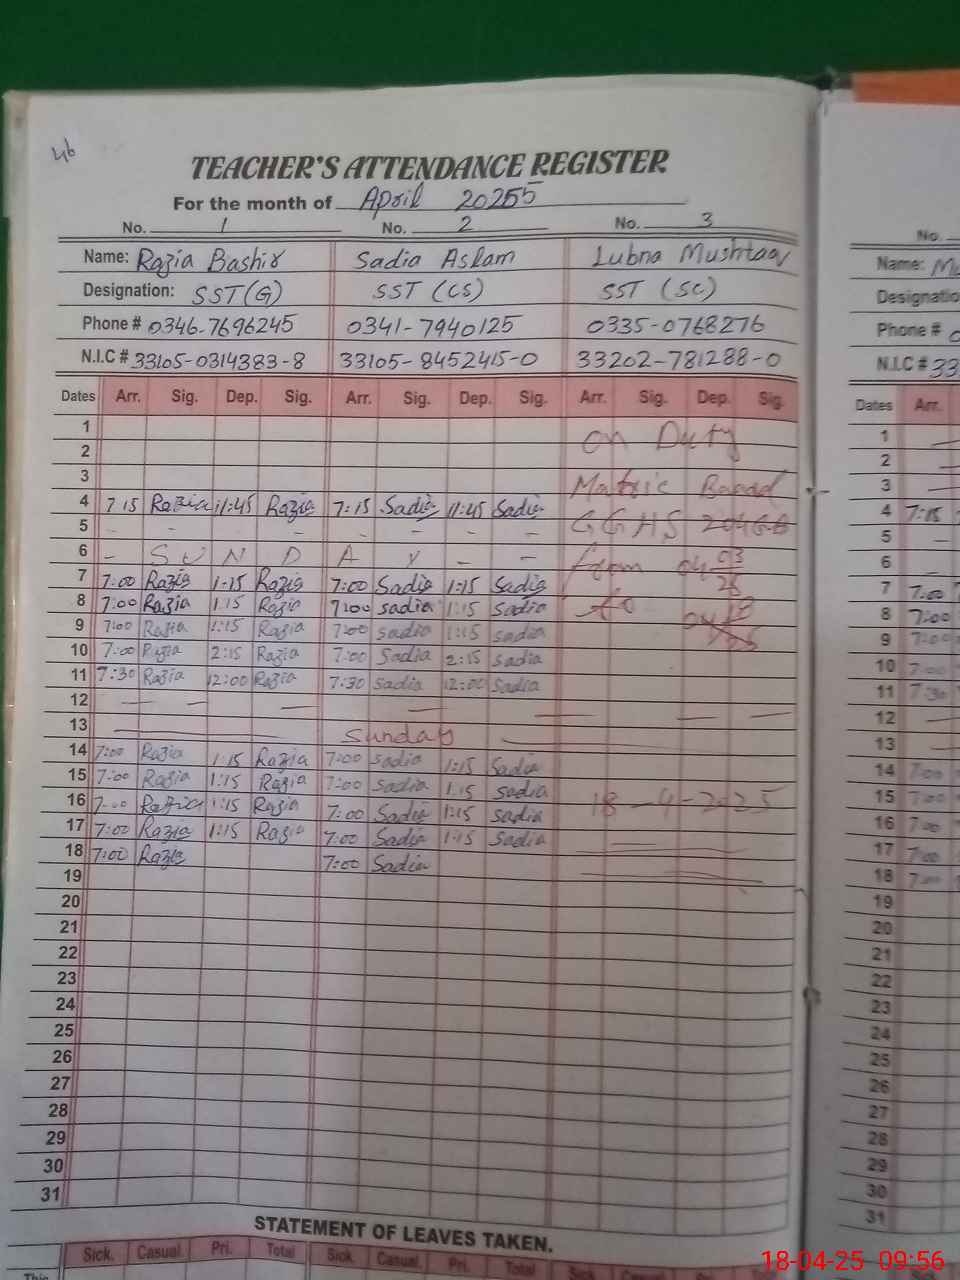 46
TEACHER'S ATTENDANCE REGISTER
For the month of April 2025
No. 1 No. 2 No. 3
Name: Razia Bashir Sadia Aslam Lubna Mushtaq
Designation: SST(G) SST (CS) SST (SC)
Phone # 0346-7696245 0341-7940125 0335-0768276
N.I.C # 33105-0314383-8 33105-8452415-0 33202-781288-0
Dates Arr. Sig. Dep. Sig. Arr. Sig. Dep. Sig. Arr. Sig. Dep. Sig.
1 On Duty
2
3 Matric Board
4 7:15 Razia 11:45 Razia 7:15 Sadia 11:45 Sadia
5 - - - - - - - GGHS
6 - S U N D A Y - - from 04
7 7:00 Razia 1:15 Razia 7:00 Sadia 1:15 Sadia
8 7:00 Razia 1:15 Razia 7:00 sadia 1:15 Sadia to
9 7:00 Razia 1:15 Razia 7:00 sadia 1:15 sadia
10 7:00 Razia 2:15 Razia 7:00 Sadia 2:15 sadia
11 7:30 Razia 12:00 Razia 7:30 sadia 12:00 Sadia
12 — — — — — — —
13 Sunday
14 7:00 Razia 1:15 Razia 7:00 sadia 1:15 Sadia
15 7:00 Razia 1:15 Razia 7:00 Sadia 1:15 sadia
16 7:00 Razia 1:15 Razia 7:00 Sadia 1:15 sadia 18-4-2025
17 7:00 Razia 1:15 Razia 7:00 Sadia 1:15 Sadia
18 7:00 Razia 7:00 Sadia
19
20
21
22
23
24
25
26
27
28
29
30
31
STATEMENT OF LEAVES TAKEN.
Sick. Casual. Pri. Total Sick. Casual. Pri. Total Sick Casual. Pri.
This
No.
Name:
Designatio
Phone #
N.I.C # 33
Dates Arr.
1
2
3
4 7:15
5 -
6 -
7 7:00
8 7:00
9 7:00
10 7:00
11 7:30
12
13
14 7:00
15 7:00
16 7:00
17 7:00
18 7:00
19
20
21
22
23
24
25
26
27
28
29
30
31
18-04-25 09:56